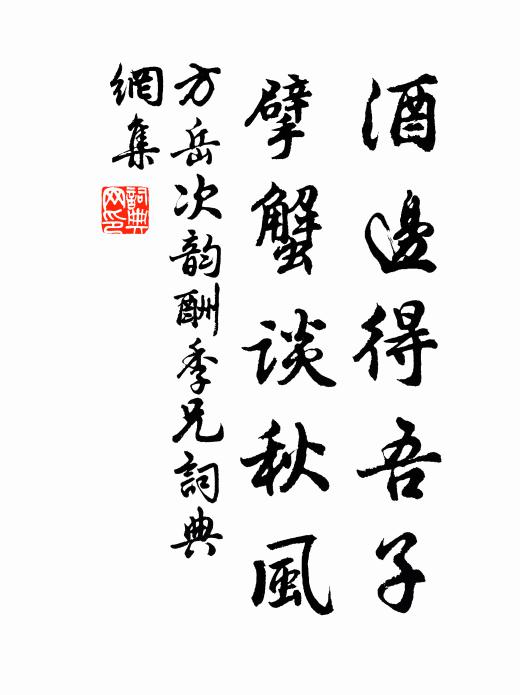 酒邊得吾子
擘蟹談秋風
方岳次韵酬季兄詞典
網集
詞典
网印